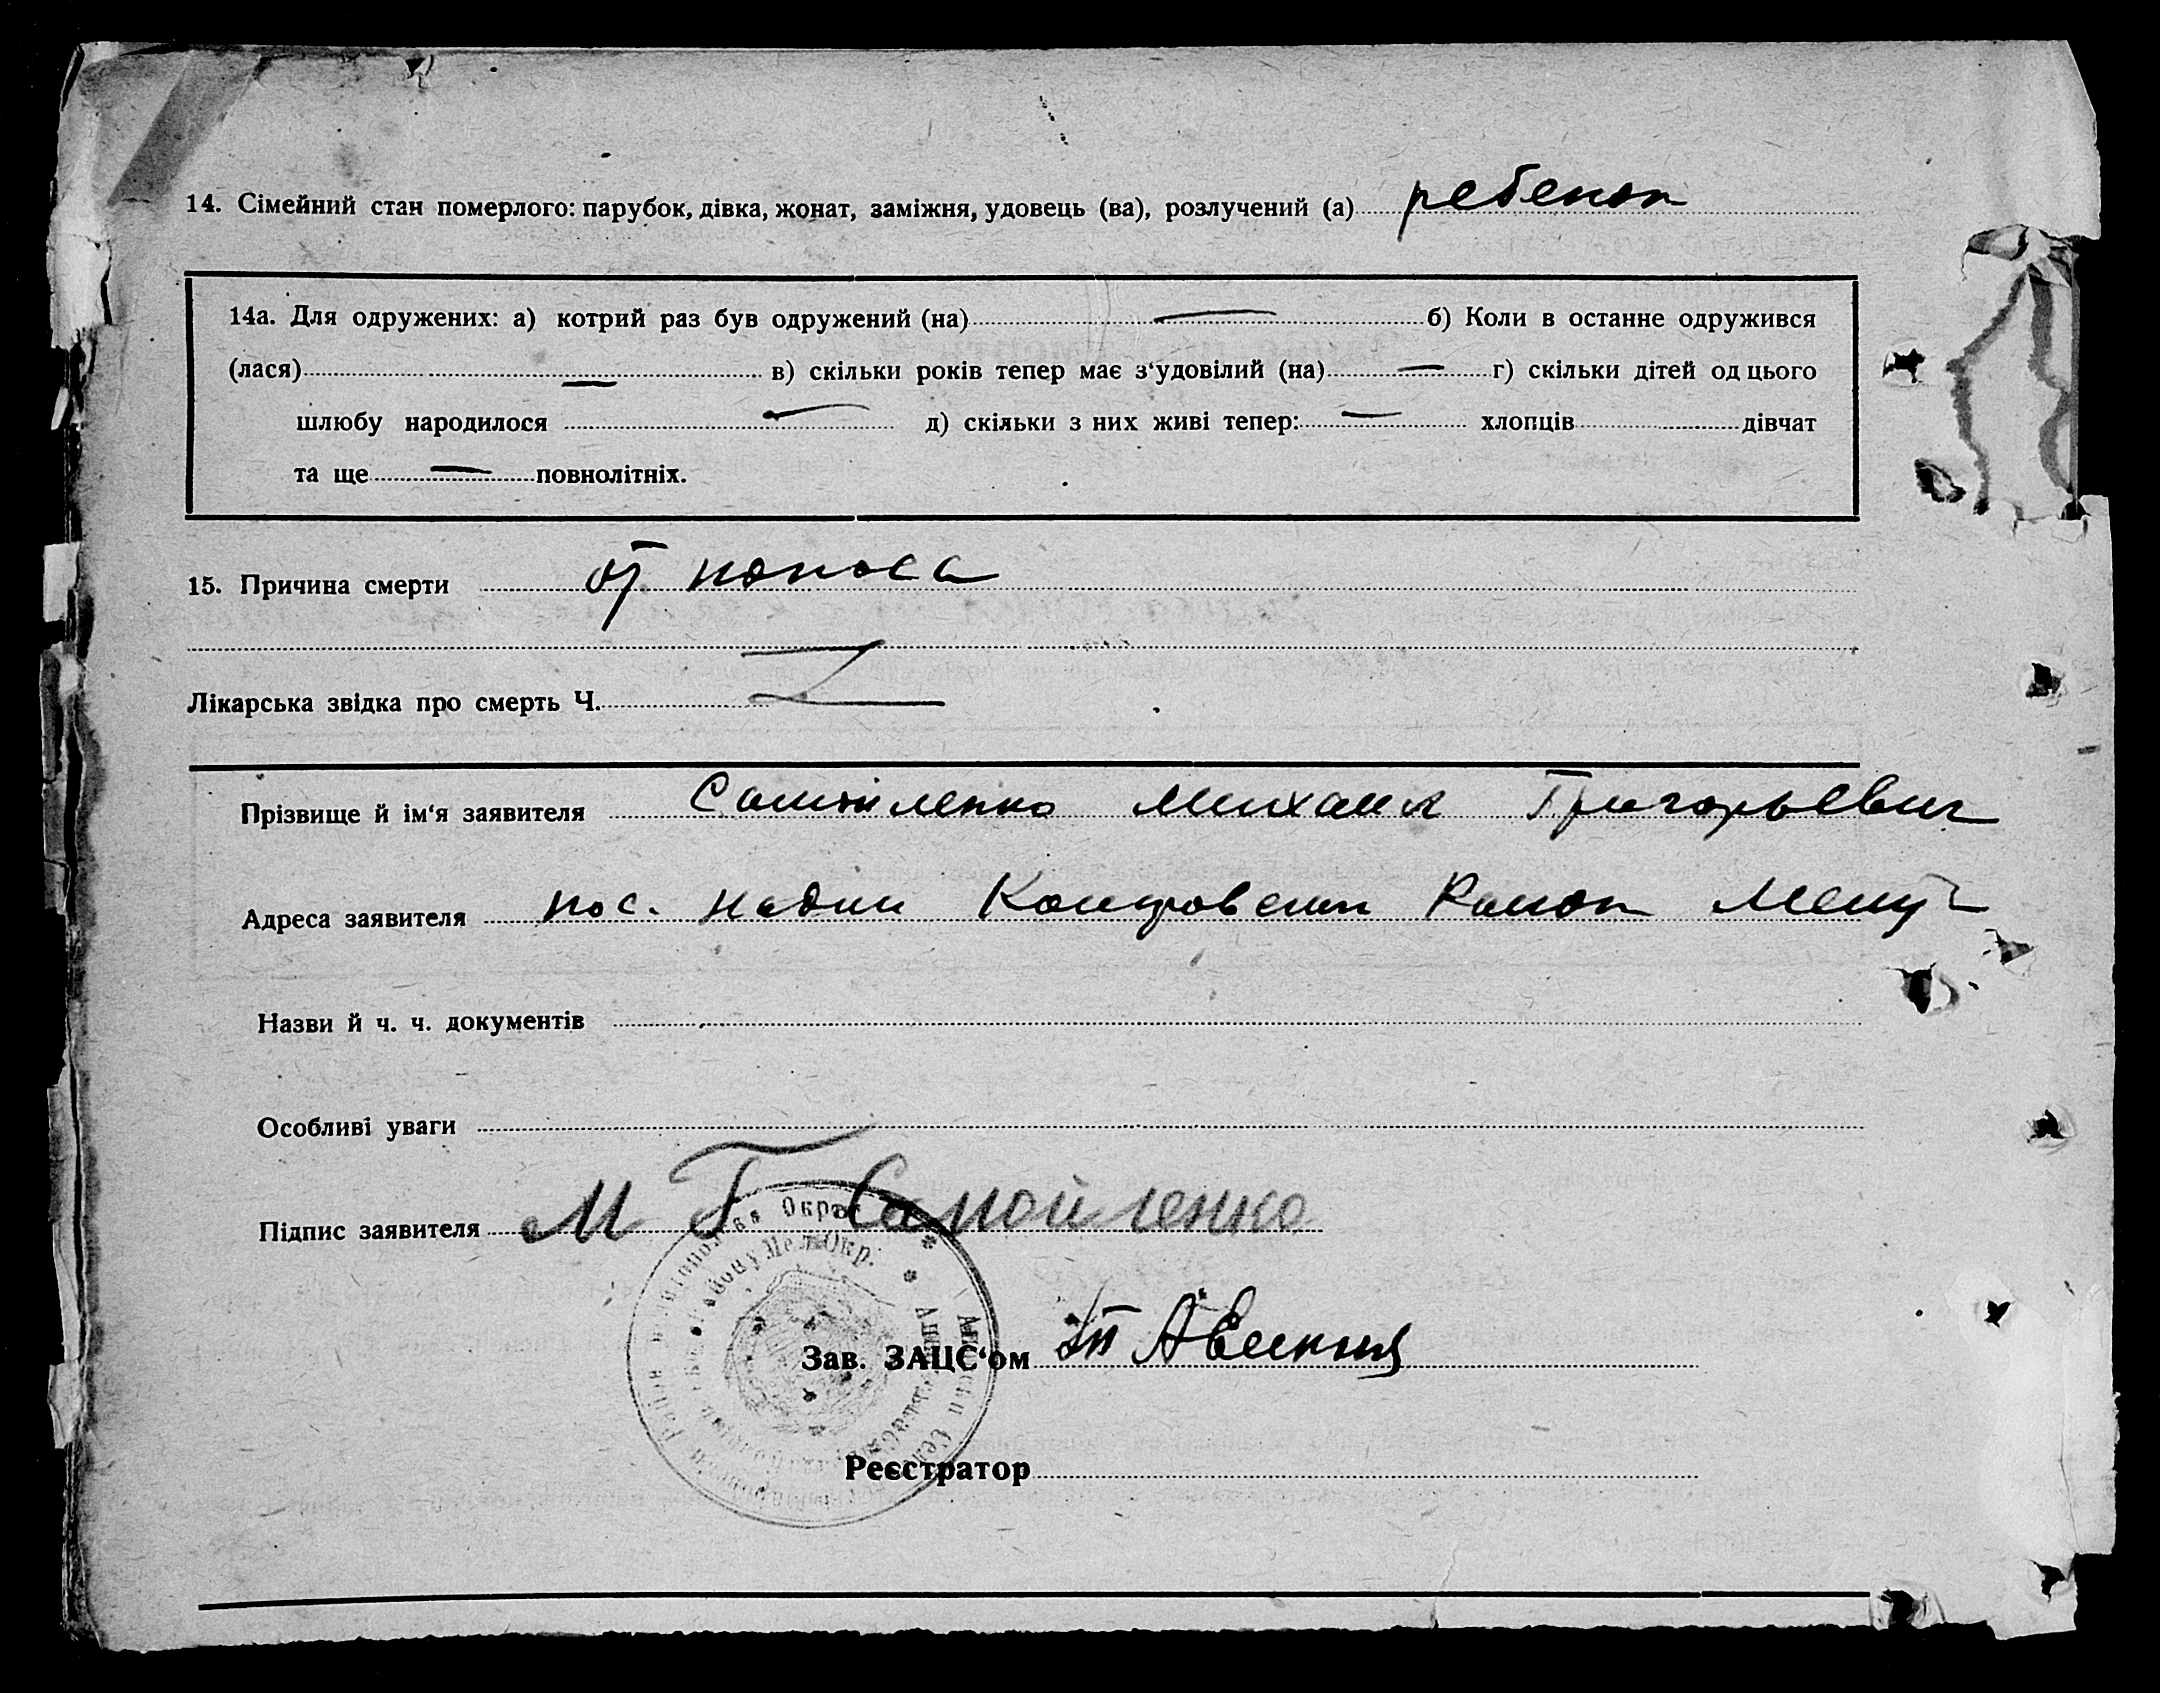 14. Сімейний стан померлого: парубок, дівка, жонат, заміжня, удовець (ва), розлучений (а) ребенок
14а. Для одружених: а) котрий раз був одружений (на) — б) Коли в останне одружився
(лася) — в) скільки років тепер має з‘удовілий (на) — г) скільки дітей од цього
шлюбу народилося — д) скільки з них живі тепер: — хлопців дівчат
та ще — повнолітніх.
15. Причина смерти от поноса
Лікарська звідка про смерть Ч.
Прізвище й ім‘я заявителя Самойленко Михаил Григорьевич
Адреса заявителя пос. Надии Район
Назви й ч. ч. документів
Особливі уваги
Підпис заявителя М Г Самойленко
Зав. ЗАЦС‘ом
Реєстратор